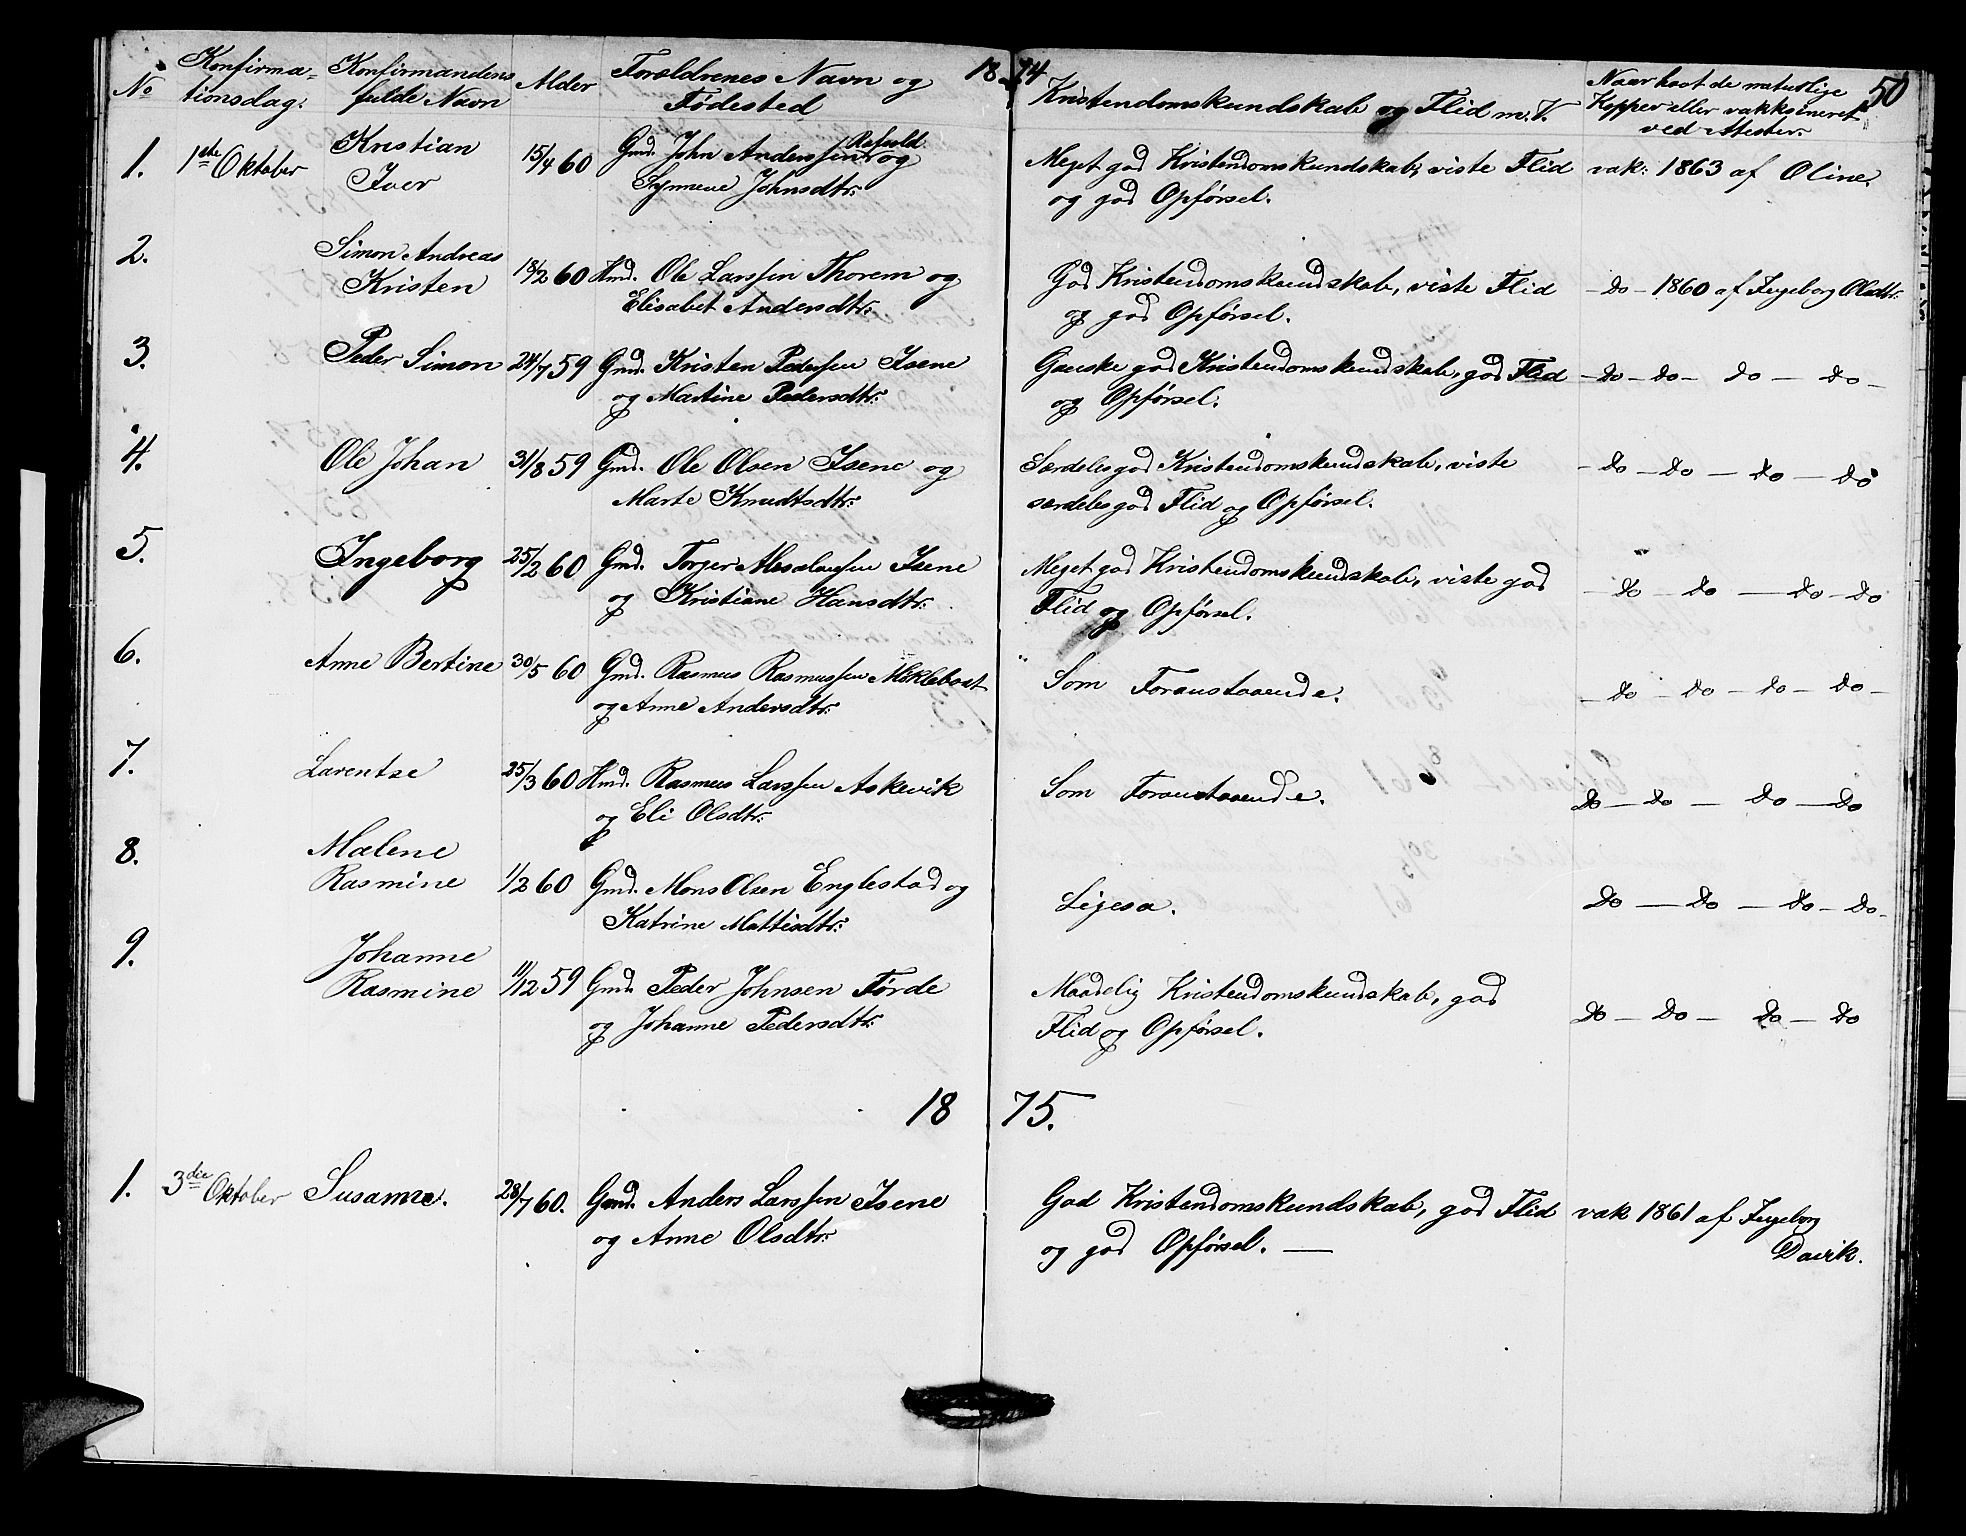 18 74
50
No Konfirma- Konfirmandens Alder Forældrenes Navn og Kristendomskundskab og Flid m. V. Naar havt de naturlige
tionsdag. fulde Navn Fødested Kopper eller vakksineret
ved Attester.
1. 1ste Oktober Kristian 15/4 60 Gmd. John Anderssen og Meget god Kristendomskundskab, viste Flid vak: 1863 af Oline.
Iver Synneve Johnsdtr. og god Opførsel.
2. Simon Andreas
Kristen 18/2 60 Hmd. Ole Larssen Thorem og God Kristendomskundskab, viste Flid - do - 1860 af Ingeborg Olsdtr.
Elisabet Andersdtr. og god Opførsel.
3. Peder Simon 24/7 59 Gmd. Kristen Pederssen Isene Ganske god Kristendomskundskab, god Flid - do - do - do - do -
og Martine Pedersdtr. og Opførsel.
4. Ole Johan 31/8 59 Gmd. Ole Olsen Isene og Særdeles god Kristendomskundskab, viste - do - do - do - do
Marte Knudtsdtr. særdeles god Flid og Opførsel.
5. Ingeborg 25/2 60 Gmd. Torger Isene Meget god Kristendomskundskab, viste god - do - do - do - do
og Kristiane Hansdtr. Flid og Opførsel.
6. Anne Bertine 30/5 60 Gmd. Rasmus Rasmussen Miklebost Som Foranstaaende. - do - do - do - do -
og Anne Andersdtr.
7. Larentse 25/3 60 Hmd. Rasmus Larssen Askevik Som Foranstaaende. do - do - do - do
og Eli Olsdtr.
8. Malene
Rasmine 1/2 60 Gmd. Mons Olsen Englestad og Ligesa. do - do - do - do -
Katrine Mattisdtr.
9. Johanne
Rasmine 11/12 59 Gmd. Peder Johnsen Førde Maadelig Kristendomskundskab, god do - do - do - do
og Johanne Pedersdtr. Flid og Opførsel.
18 75.
1. 3die Oktober Susanne. 28/7 60. Gmd. Anders Larssen Isene God Kristendomskundskab, god Flid vak 1861 af Ingeborg
og Anne Olsdtr. og god Opførsel. — Davik.